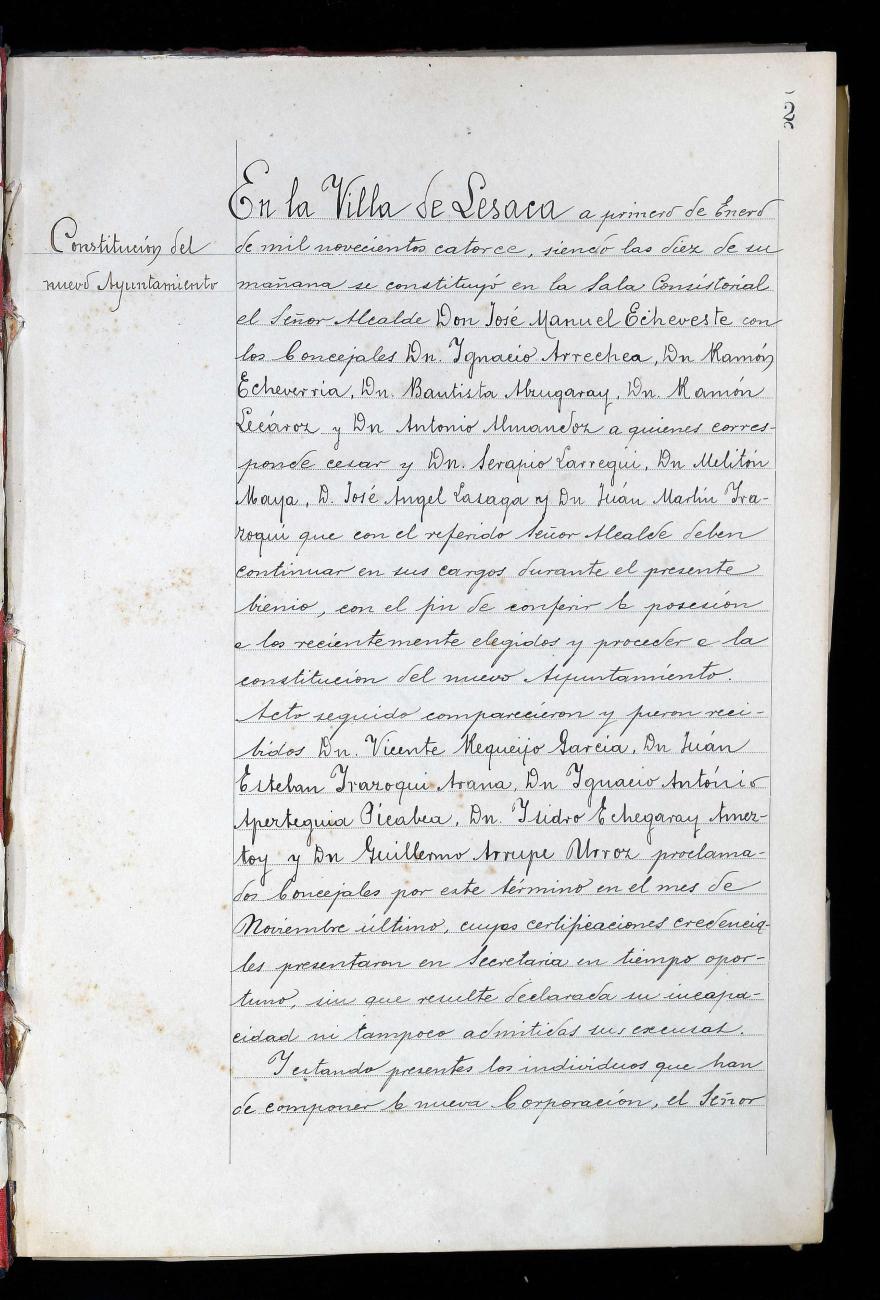 2
En la Villa de Lesaca a primero de Enero
Constitución del
nuevo Ayuntamiento
de mil novecientos catorce, siendo las diez de su
mañana se constituyó en la Sala Consistorial
el Señor Alcalde Don José Manuel Echeveste con
los Concejales Dn. Ignacio Arrechea, Dn Ramón
Echeverria, Dn. Bautista Alzugaray, Dn. Ramón
Lecároz y Dn Antonio Almandoz a quienes corres-
ponde cesar y Dn. Serapio Larregui, Dn Melitón
Maya, D. José Angel Lasaga y Dn Juán Martín Ira-
zoqui que con el referido Señor Alcalde deben
continuar en sus cargos durante el presente
bienio, con el fin de conferir la posesión
a los recientemente elegidos y proceder a la
constitución del nuevo Ayuntamiento.
Acto seguido comparecieron y fueron reci-
bidos Dn. Vicente Requeijo Garcia, Dn Juán
Esteban Irazoqui Arana, Dn Ignacio António
Aperteguia Picabea, Dn. Isidro Echegaray Amez-
toy y Dn Guillermo Arrupe Urroz proclama-
dos Concejales por este término en el mes de
Noviembre último, cuyas certificaciones credencia-
les presentaron en Secretaria en tiempo opor-
tuno, sin que resulte declarada su incapa-
cidad ni tampoco admitidas sus excusas.
Y estando presentes los individuos que han
de componer la nueva Corporación, el Señor